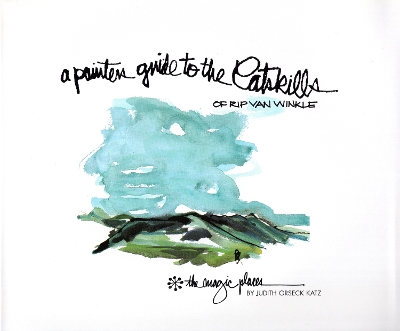 a painters guide to the Catskills
OF RIP VAN WINKLE
the magic places
BY JUDITH ORSECK KATZ